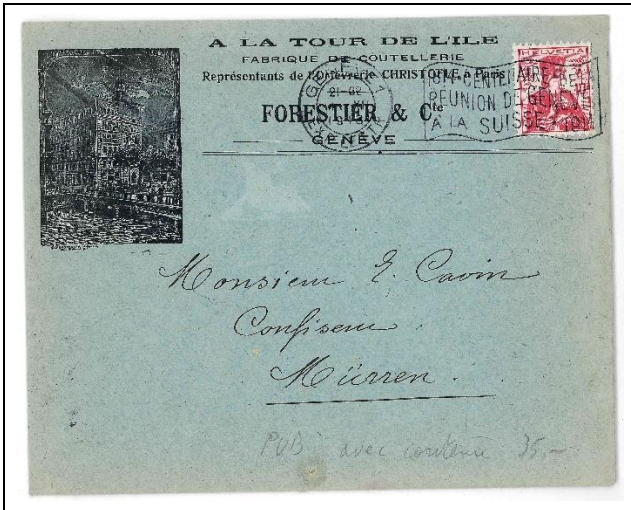 A LA TOUR DE L'ILE
FABRIQUE DE COUTELLERIE
Représentants de l'Orfèvrerie CHRISTOFLE à Paris
FORESTIER & Cie
GENÈVE
HELVETIA
CENTENAIRE DE
RÉUNION DE GENÈVE
A LA SUISSE
Monsieur E. Cavin
Confiseur
Mürren.
PUB avec contenu 35.-